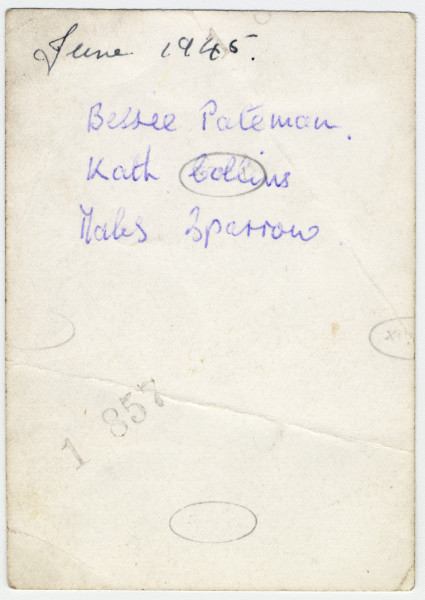 June 1945.
Bessee Pateman.
Kath Collins
Mabs Sparrow
1 857